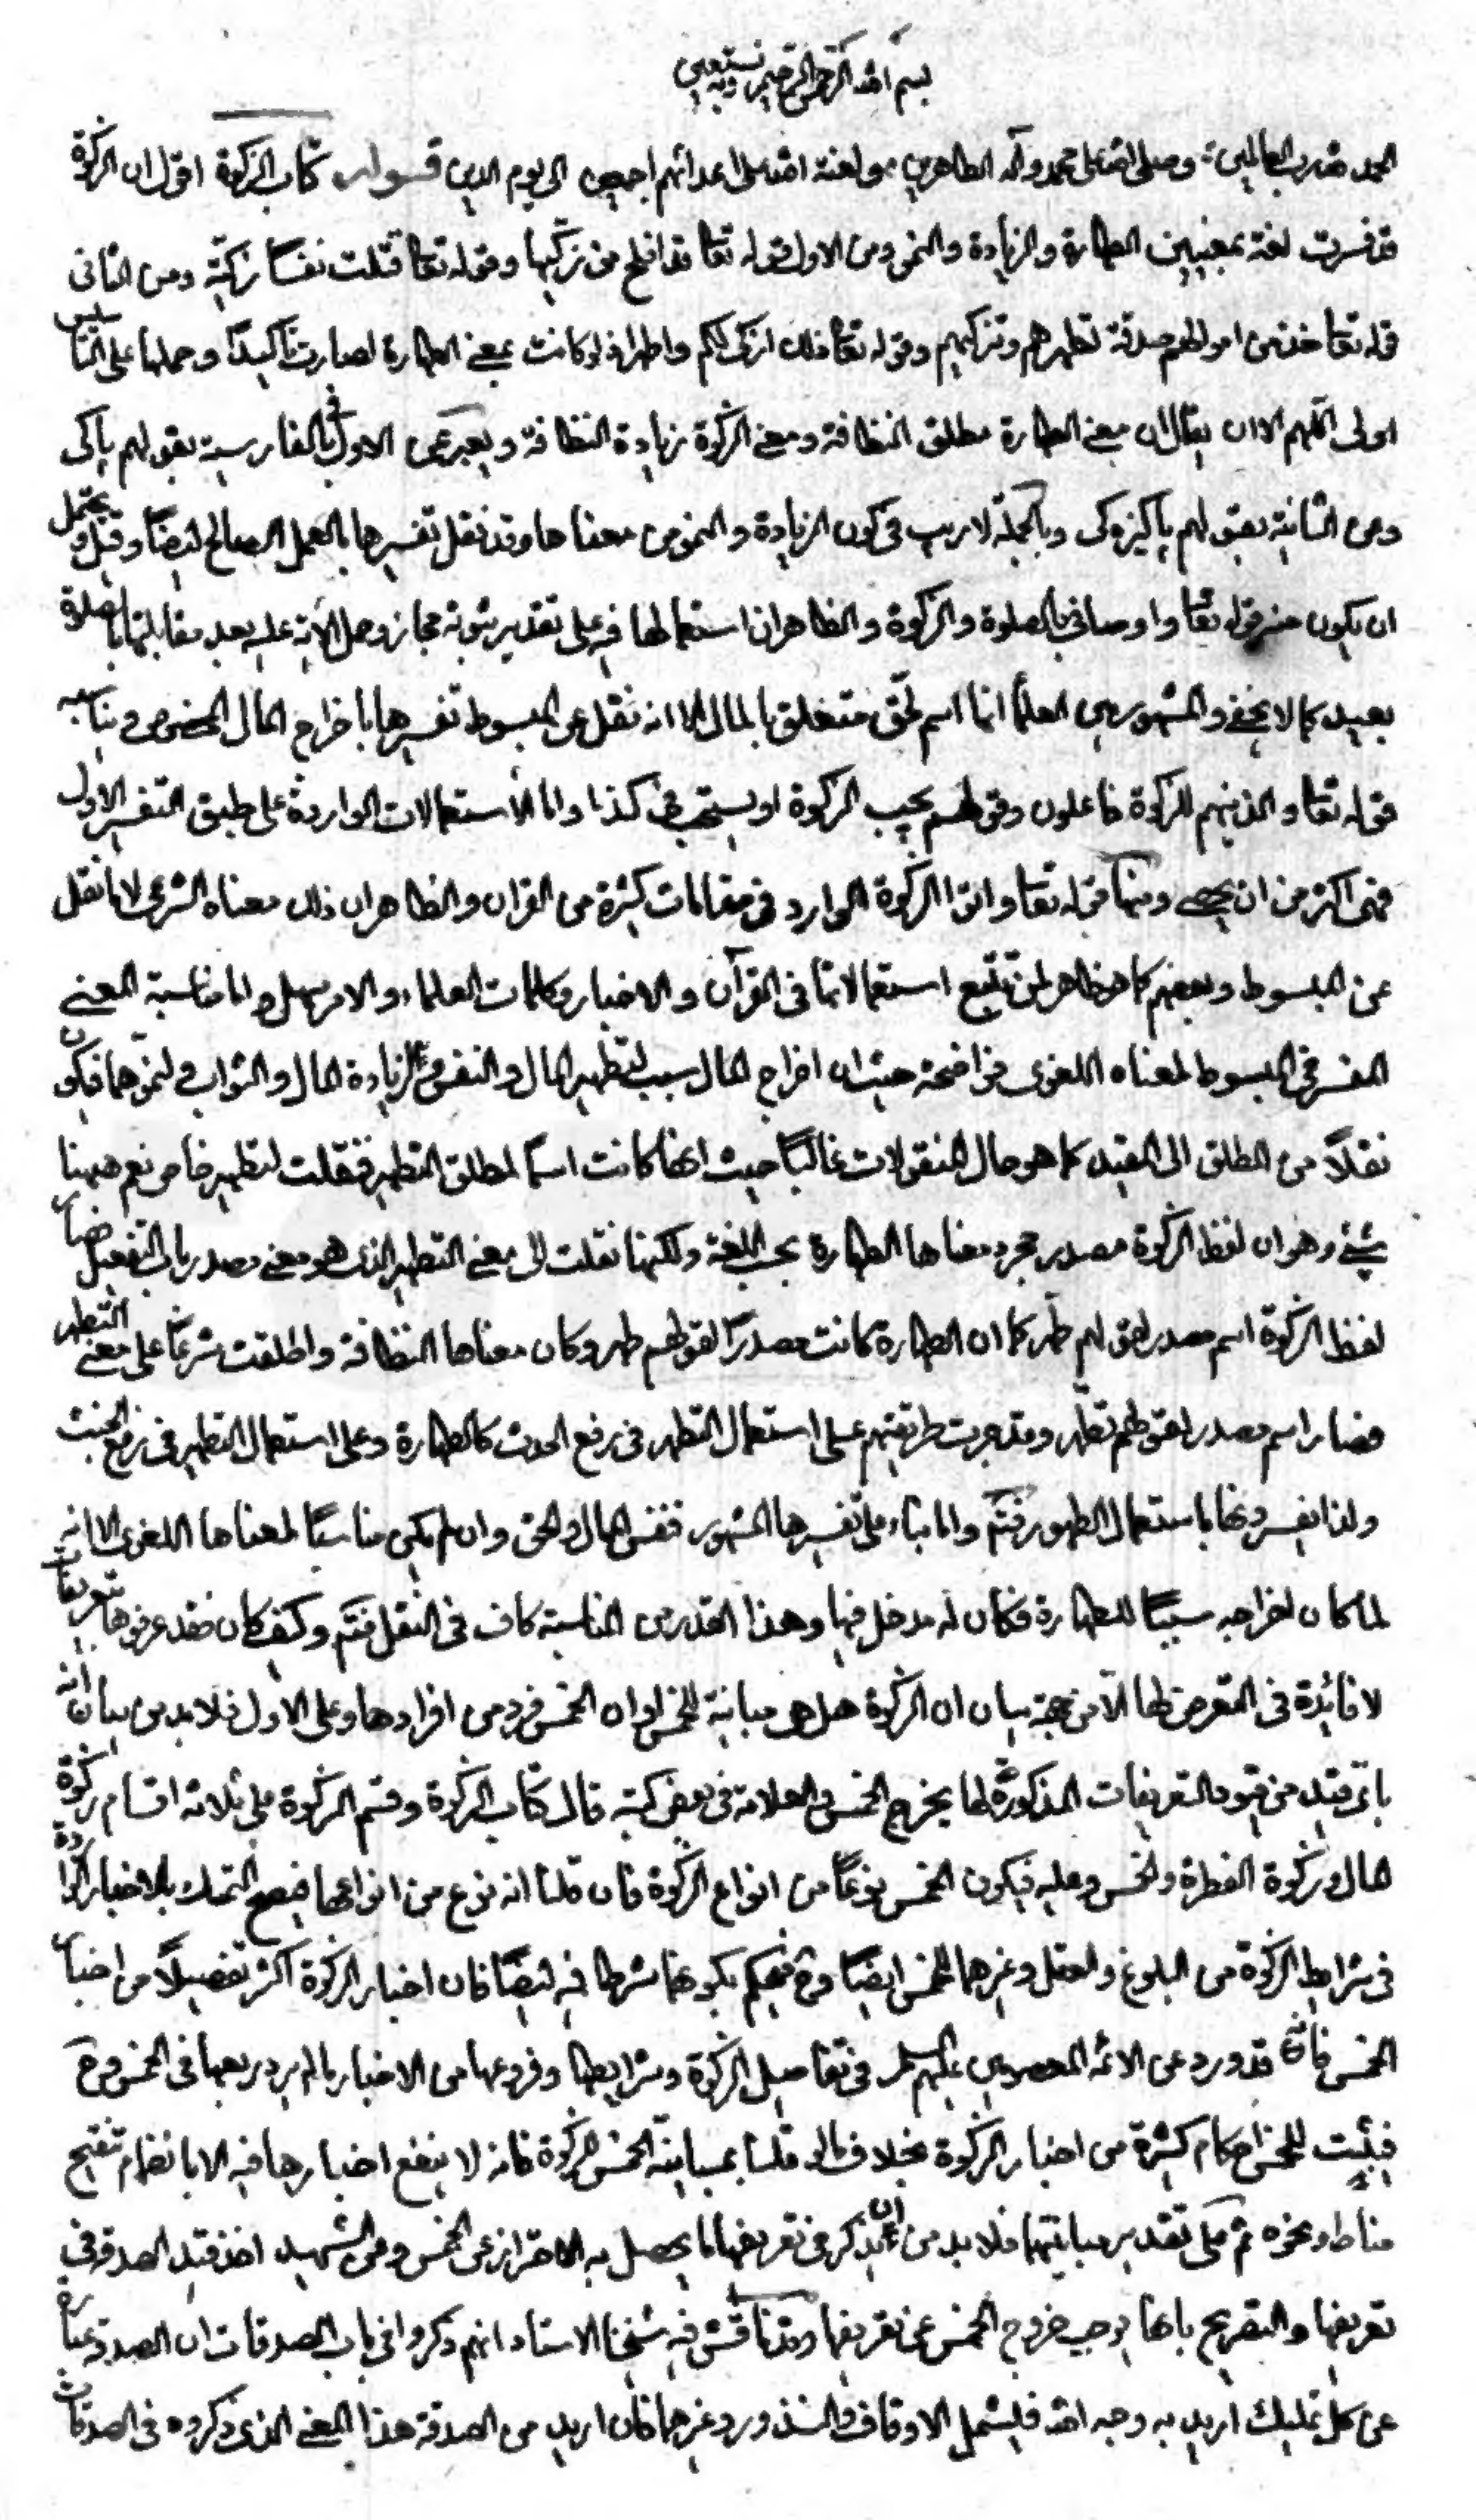 بسم الله الرحمن الرحيم وبه نستعين
الحمد لله رب العالمين وصلى الله على محمد وآله الطاهرين ولعنة الله على اعدائهم اجمعين الى يوم الدين قوله كتاب الزكوة اقول ان الزكوة
قد فسرت لغة بمعنيين الطهارة والزيادة والنمو ومن الاول قوله تعا قد افلح من زكيها وقوله تعا قتلت نفسا زكية ومن الثانى
قوله تعا خذ من اموالهم صدقة تطهرهم وتزكيهم وقوله تعا ذلك ازكى لكم واطهر اذ لو كانت بمعنى الطهارة لصارت تاكيدًا وحملها على التاسيس
اولى اللهم الا ان يقال ان معنى الطهارة مطلق النظافة ومعنى الزكوة زيادة النظافة ويعبر عن الاول فى الفارسية بقولهم پاكى
وعن الثانية بقولهم پاكيزه كى وبالجملة لا ريب فى كون الزيادة والنمو من معناها وقد نقل تفسيرها بالعمل الصالح ايضًا وقيل يحتمل
ان يكون منه قوله تعا واوصانى بالصلوة والزكوة والظاهر ان استعمالها فيه على تقدير ثبوته مجاز وحمل الآية عليه بعد مقابلتها بالصلوة
بعيد كما لا يخفى والمشهور بين العلماء انها اسم لحق متعلق بالمال الا انه نقل عن المبسوط تفسيرها باخراج المال المخصوص ويناسبه
قوله تعا والذينهم للزكوة فاعلون وقولهم يجب الزكوة او يستحب فى كذا واما الاستعمالات الواردة على طبق التفسير الاول
فهى اكثر من ان يحصى ومنها قوله تعا واتوا الزكوة الوارد فى مقامات كثيرة من القران والظاهر ان ذلك معناه الشرعى لا ما نقل
عن المبسوط وبعضهم كما هو ظاهر لمن تتبع استعمالاتها فى القرآن والاخبار وكلمات العلماء والامر سهل واما مناسبة المعنى
المفسر فى المبسوط لمعناه اللغوى فواضحة حيث ان اخراج المال سبب لتطهير المال والنفس ولزيادة المال والثواب ولنموهما فيكون
نقلاً من المطلق الى المقيد كما هو حال المنقولات غالبًا حيث انها كانت اسمًا لمطلق التطهير فنقلت لتطهير خاص نعم ههنا
شئ وهو ان لفظ الزكوة مصدر مجرد معناها الطهارة بحسب اللغة ولكنها نقلت الى معنى التطهير الذى هو معنى مصدر باب التفعيل فصار
لفظ الزكوة اسم مصدر لقولهم طهر كما ان الطهارة كانت مصدرًا لقولهم طهر وكان معناها النظافة واطلقت شرعًا على معنى التطهر
فصار اسم مصدر لقولهم تطهر وقد جرت طريقتهم على استعمال التطهر فى رفع الحدث كالطهارة وعلى استعمال التطهير فى رفع الخبث
ولذا يفسرونها باستعمال الطهور فتم واما بناء على تفسيرها المشهور فنفس المال والحق وان لم يكن مناسبًا لمعناها اللغوى الا انه
لما كان اخراجه سببًا للطهارة فكان له مدخل فيها وهذا القدر من المناسبة كاف فى النقل فتم وكيف كان فقد عرفوها بتعريفات
لا فائدة فى التعرض لها الا من جهة بيان ان الزكوة هل هى مباينة للخمس او ان الخمس فرد من افرادها وعلى الاول فلا بد من بيان انه
باى قيد من قيود التعريفات المذكورة لها يخرج الخمس والعلامة فى بعض كتبه قال كتاب الزكوة وقسم الزكوة على ثلاثة اقسام زكوة
المال وزكوة الفطرة والخمس وعليه فيكون الخمس نوعًا من انواع الزكوة فان قلنا انه نوع من انواعها فيصح التمسك بالاخبار الواردة
فى شرايط الزكوة من البلوغ والعقل وغيرهما للخمس ايضًا وح فيحكم بكونها شرطا فيه ايضًا فان اخبار الزكوة اكثر تفصيلاً من اخبار
الخمس فانه قد ورد عن الائمة المعصومين عليهم السلم فى تفاصيل الزكوة وشرايطها وفروعها من الاخبار ما لم يرد ربعها فى الخمس وح
فيثبت للخمس احكام كثيرة من اخبار الزكوة بخلاف ما لو قلنا بمباينة الخمس للزكوة فانه لا ينفع اخبارها فيه الا بانضمام تنقيح
مناط ونحوه ثم على تقدير مباينتهما فلا بد من ان يذكر فى تعريفها ما يحصل به الاحتراز عن الخمس وعن الشهيد اخذ قيد الصدقة فى
تعريفها والتصريح بانها يوجب خروج الخمس عن تعريفها وقد ناقش فيه شيخنا الاستاد انهم ذكروا فى باب الصدقات ان الصدقة عبارة
عن كل تمليك اريد به وجه الله فيشمل الاوقاف والنذور وغيرهما فان اريد من الصدقة هذا المعنى الذى ذكروه فى الصدقات